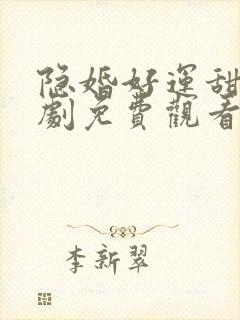 隐婚好運甜
劇免費觀看
李新翠